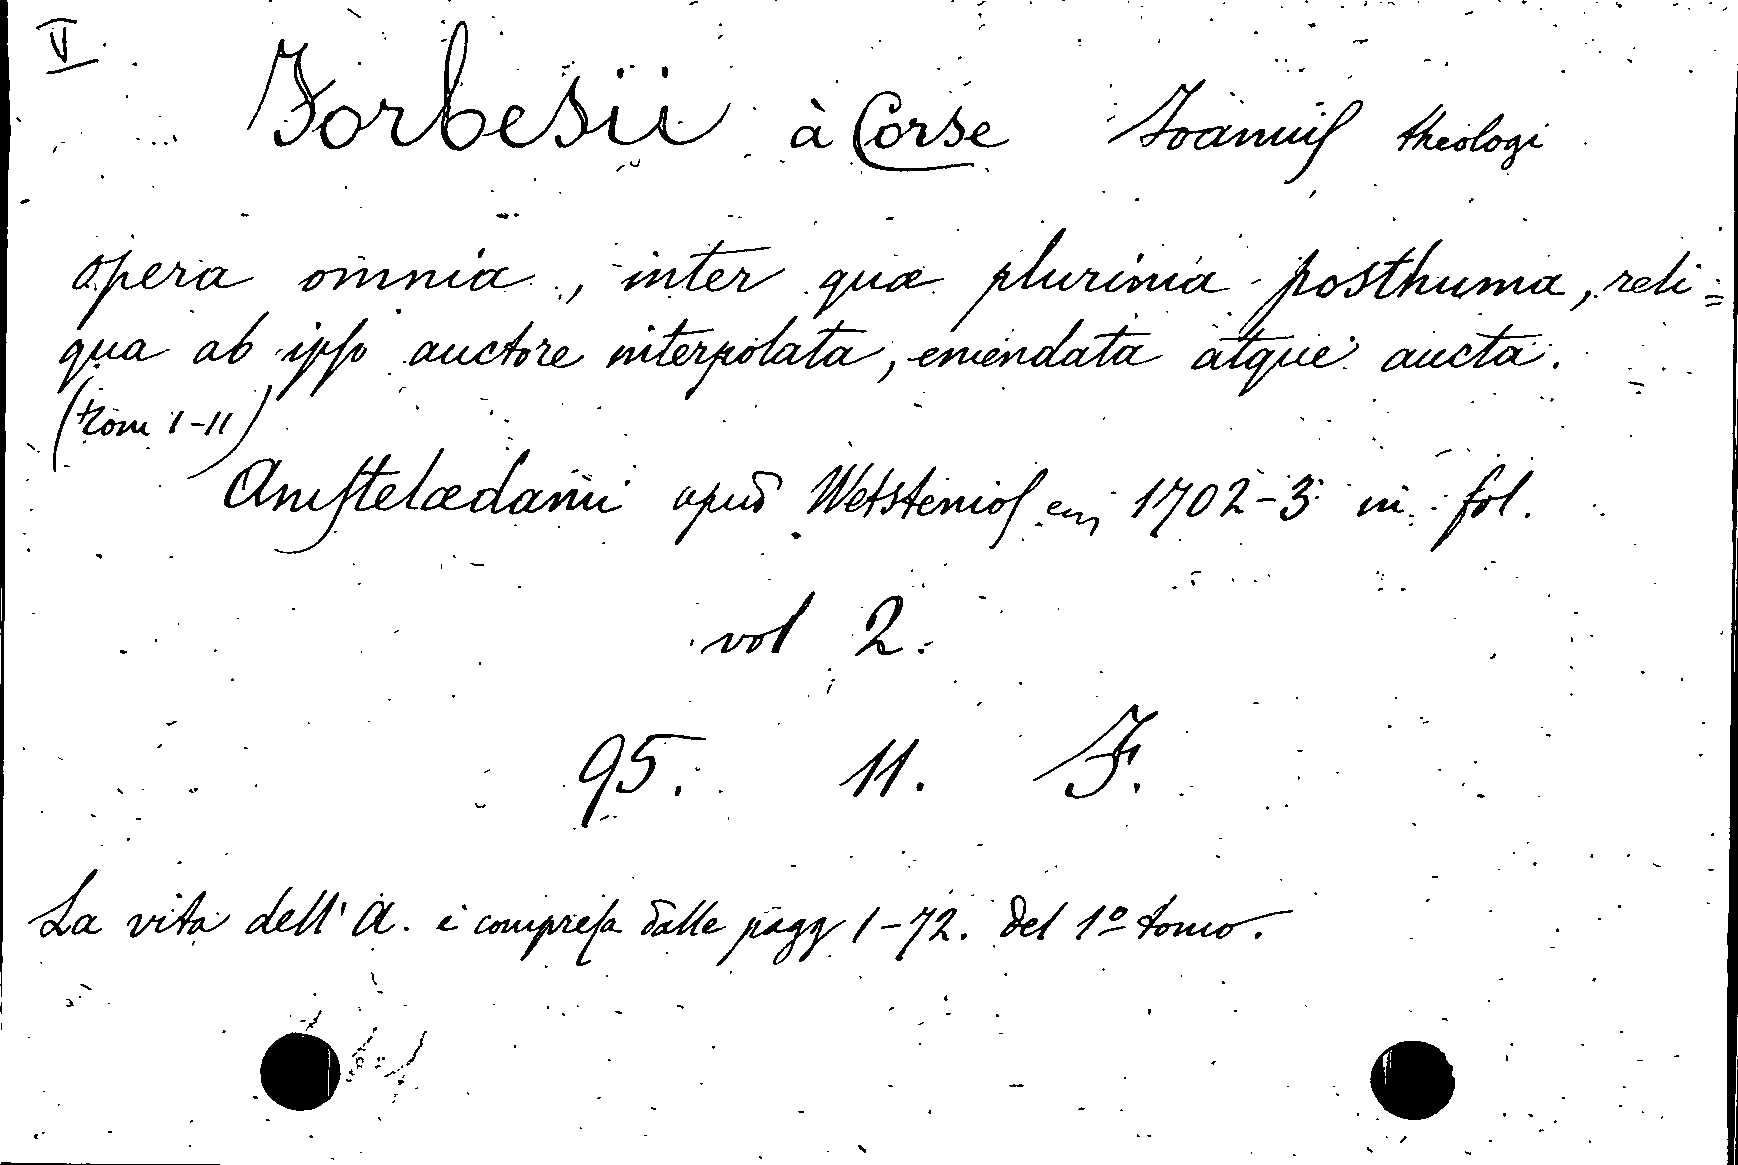 V
Forbesii à Corse Ioannis theologi
opera omnia, inter quæ plurima posthuma, reli=
qua ab ipso auctore interpolata, emendata atque aucta.
(tom I-II)
Amstelædami apud Wetstenios 1702-3 in fol.
vol 2.
95. 11. F.
La vita dell' A. è compresa dalle pagg 1-72. del 1º tomo.